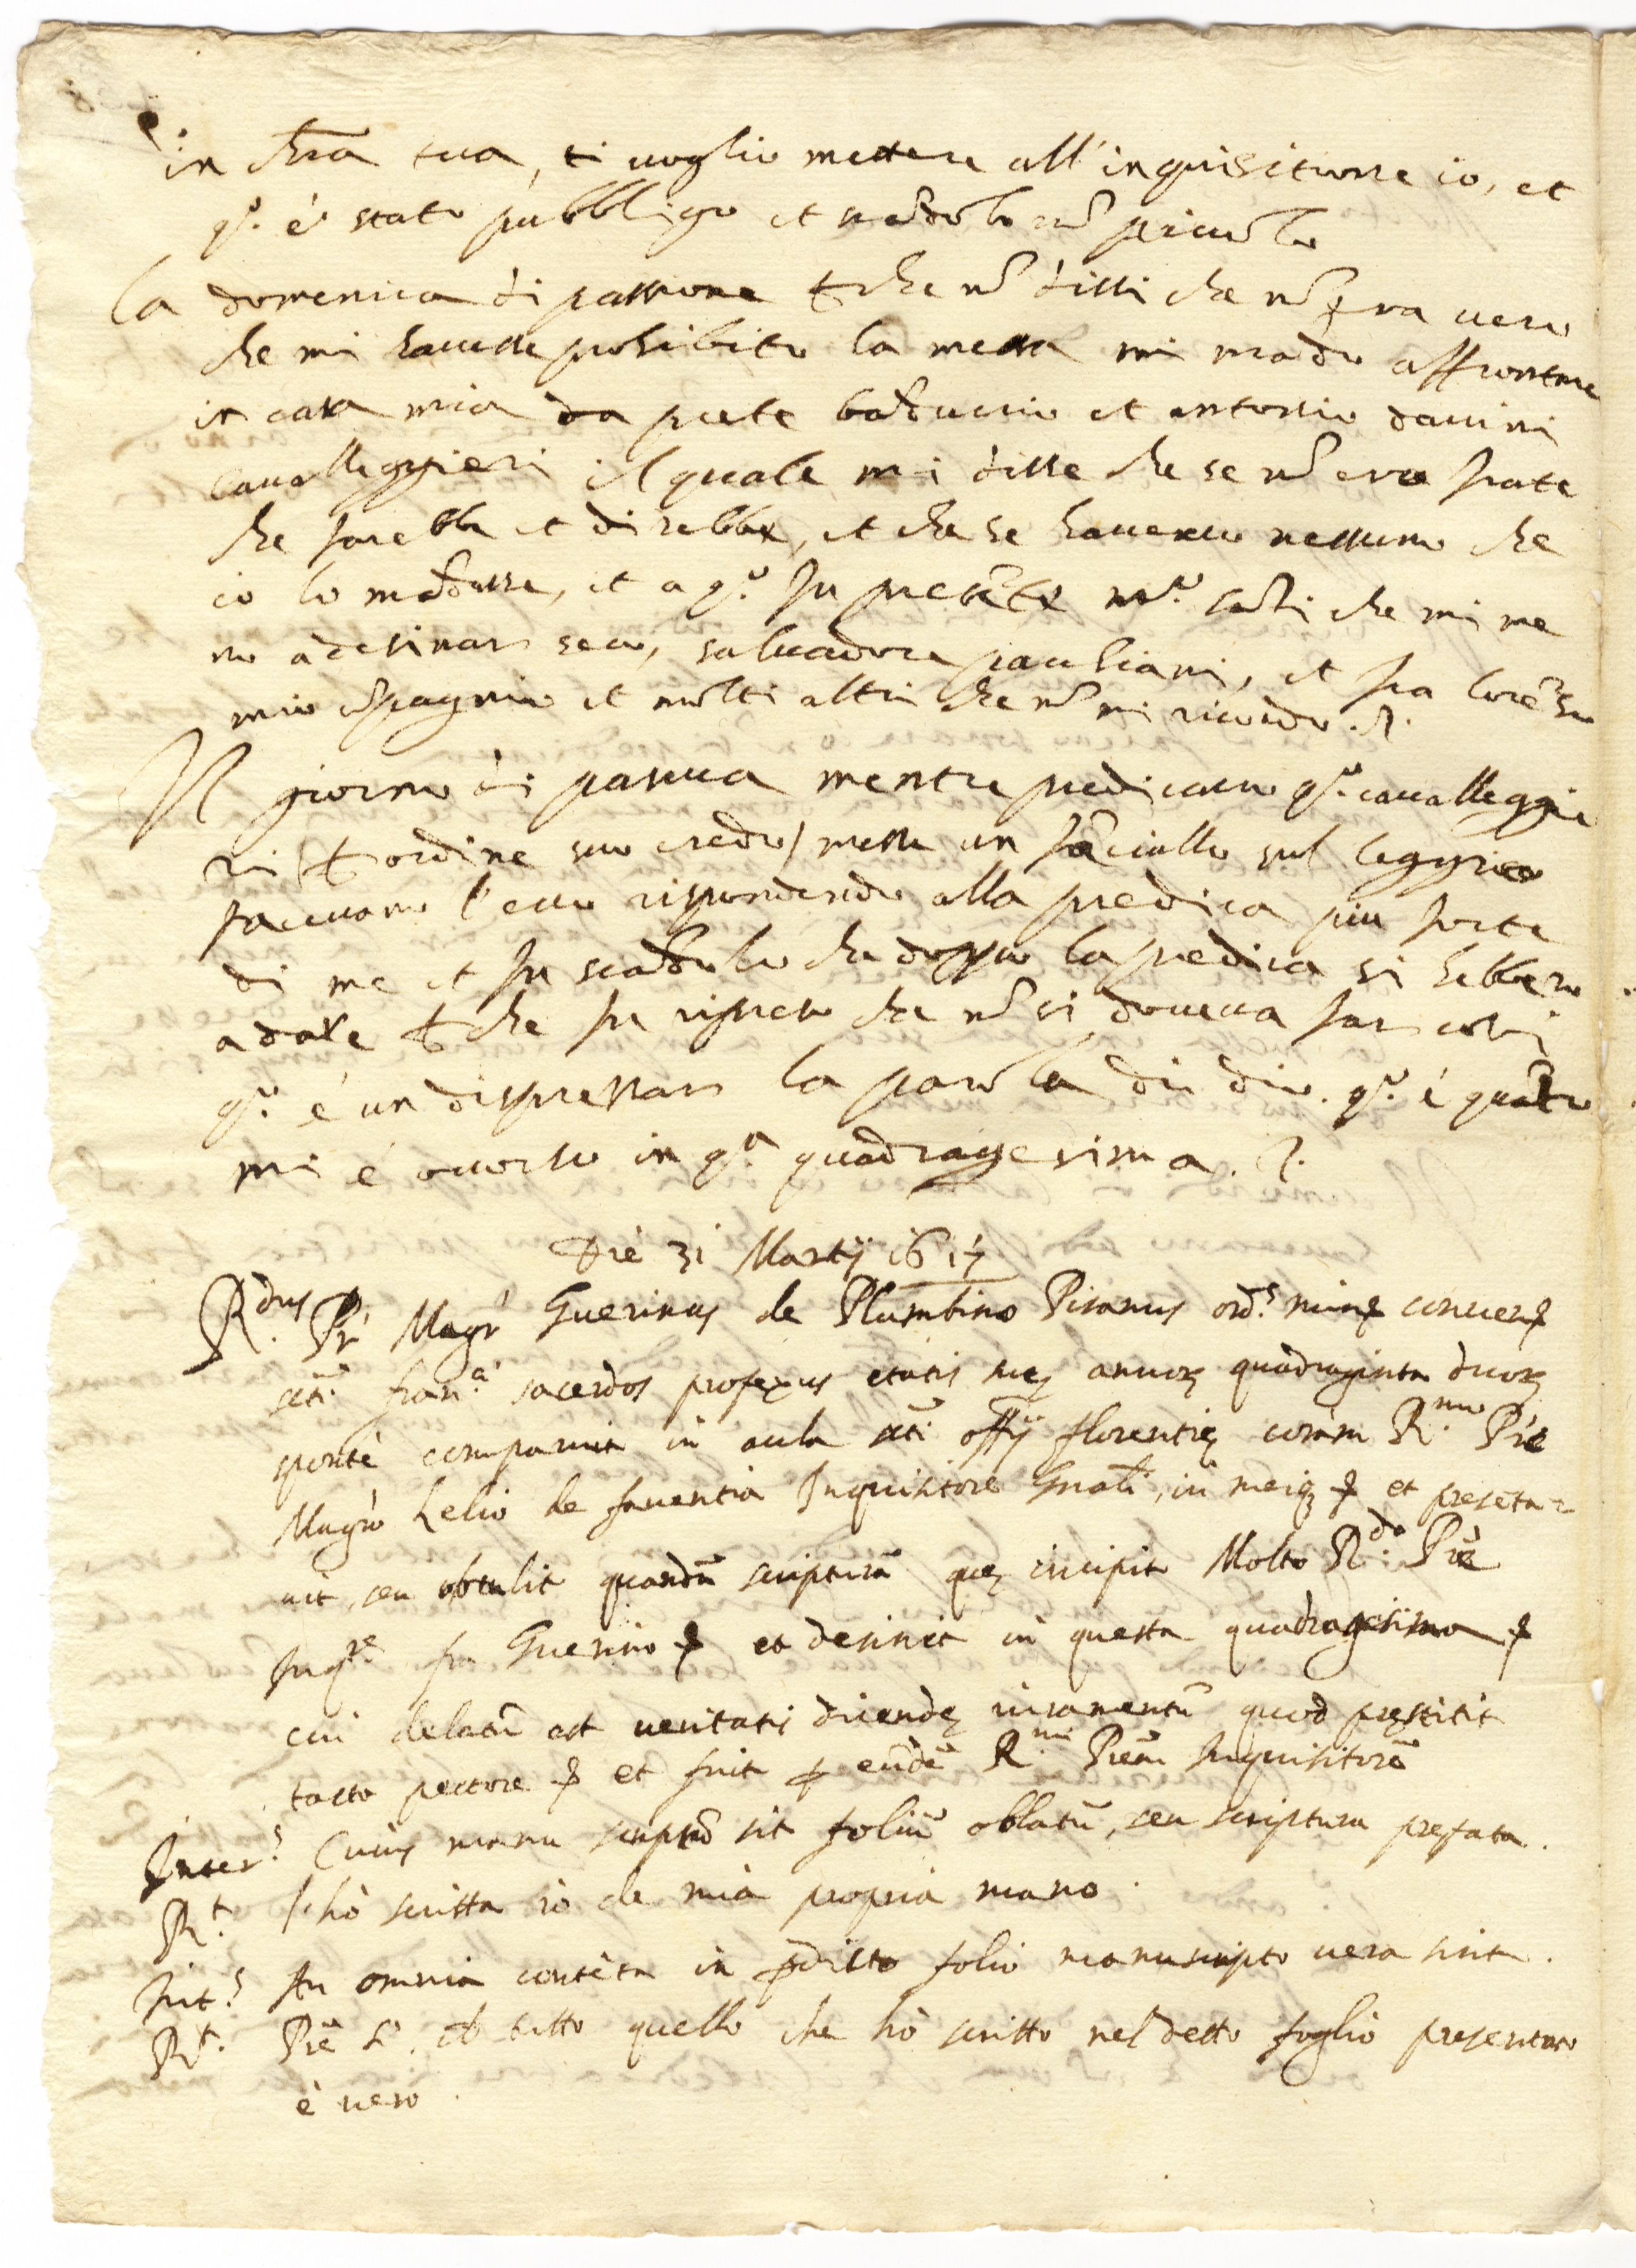 in chiesa tua, ti voglio mettere all'inquisitione io, et
q.º é stato pubbligo et scādolo nō piccolo
la domenica di passione ꝑche nō dissi che nō era vero
che mi havesse prohibito la messa mi mādo affrontare
in casa mia da prete et antonio davini
cavalleggieri il quale mi disse che se nō ero frate
che farebbe et direbbe, et che se havevo nessuno che
io lo mādasse, et a q.º fu presēte mi me
no à desinar seco, salvadore pauliani, et fra lorēzo
mio cōpagnio et molti altri che nō mi ricordo.
Il giorno di pasqua mentre predicavo q.º cavalleggie
ri ꝑ ordine suo credo/ messe un fāciullo sul leggio
facevano l'ecco rispondendo alla predica piu forte
di me et fu scādolo che doppo la predica si hebbero
a dare ꝑche fu ripreso che nō si doveva far cosi
q.º é un disprezzar la parola di dio. q.º é quāto
mi é occorso in q.ª quadragesima.
Die 31 Martij 1617
R.dus Pr Magr Guerinus de Plumbino Pisanus ord.s min. conven.
scti fran.ci sacerdos professus etatis suę annorꝫ quadraginta duorꝫ
sponte comparuit in aula scti offij florentię coram R.mo Prē
Magrō Lelio de faventia Inquisitore Gnāli, in meiq et presēta=
vit, seu obtulit quandā scripturā quę incipit Molto R.do Prē
Inq.re fra Guerino et desinit in questa quadragesima
cui delatū est veritatis dicendę iuramentū quod prestitit
tacto pectore et fuit ꝑ eūdē R.mū Prēm Inquisitorē
Inter.s Cuius manu scriptū sit foliū oblatū, seu scriptura prefata.
R.t l'hò scritta io de mia propria mano.
Int.s An omnia contēta in pdicto folio manuscripto vera sint.
R.t Prē Sì, tutto quello che hò scritto nel detto foglio presentato
è vero.